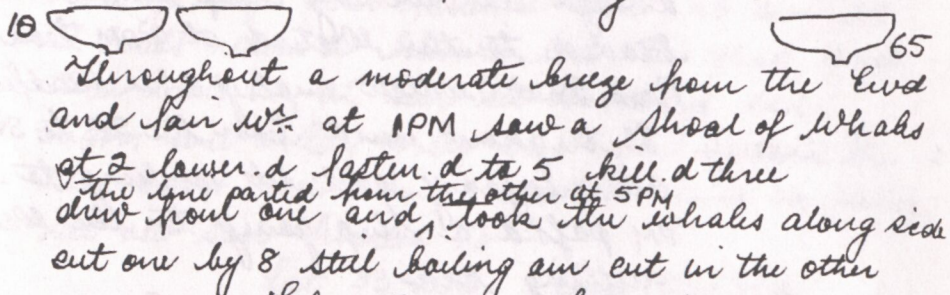 10 65
Throughout a moderate breeze from the Ewd
and fair w÷ at 1PM saw a shoal of Whales
at 2 lower.d fasten.d to 5 kill.d three
the line parted from the other at 5PM
drew from one and took the whales along side
cut one by 8 still boiling am cut in the other